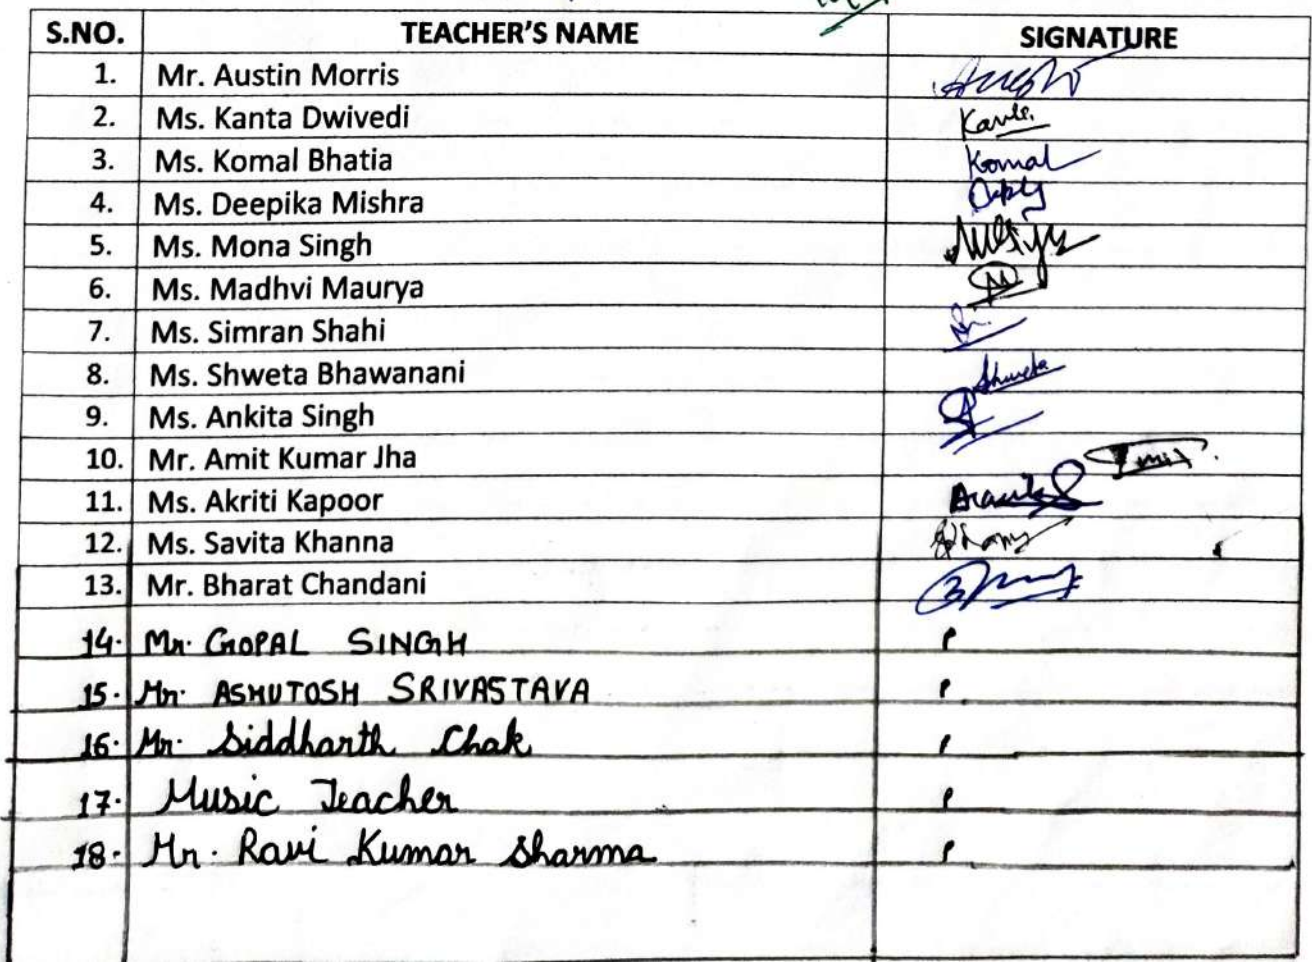 S.NO. TEACHER'S NAME SIGNATURE
1. Mr. Austin Morris
2. Ms. Kanta Dwivedi Kanta
3. Ms. Komal Bhatia Komal
4. Ms. Deepika Mishra
5. Ms. Mona Singh
6. Ms. Madhvi Maurya
7. Ms. Simran Shahi
8. Ms. Shweta Bhawanani Shweta
9. Ms. Ankita Singh
10. Mr. Amit Kumar Jha
11. Ms. Akriti Kapoor
12. Ms. Savita Khanna
13. Mr. Bharat Chandani
14. Mr. GOPAL SINGH P
15. Mr. ASHUTOSH SRIVASTAVA P
16. Mr. Siddharth Chak P
17. Music Teacher P
18. Mr. Ravi Kumar Sharma P